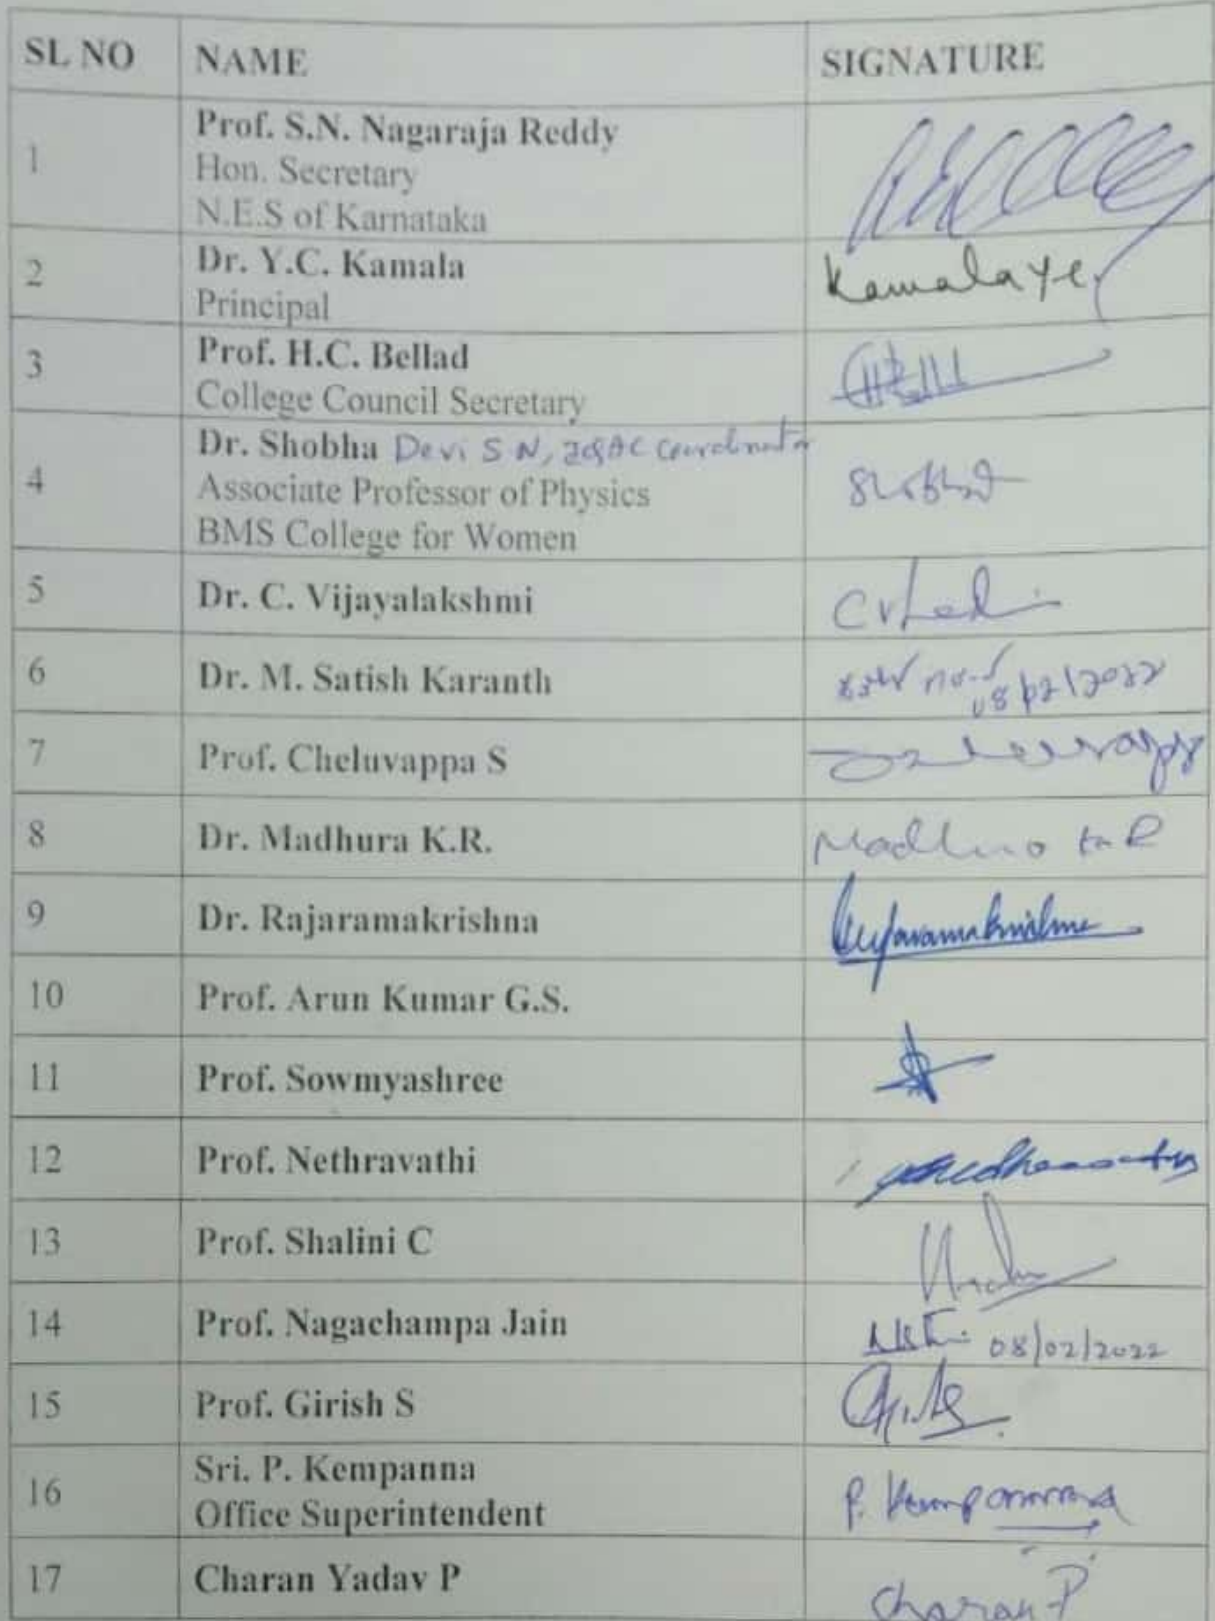 SL NO NAME SIGNATURE
1 Prof. S.N. Nagaraja Reddy
Hon. Secretary
N.E.S of Karnataka
2 Dr. Y.C. Kamala Kamala Y.C.
Principal
3 Prof. H.C. Bellad
College Council Secretary
4 Dr. Shobha Devi S N, IQAC Coordinator
Associate Professor of Physics
BMS College for Women
5 Dr. C. Vijayalakshmi
6 Dr. M. Satish Karanth
08/02/2022
7 Prof. Cheluvappa S
8 Dr. Madhura K.R.
9 Dr. Rajaramakrishna Rajaramakrishna
10 Prof. Arun Kumar G.S.
11 Prof. Sowmyashree
12 Prof. Nethravathi
13 Prof. Shalini C
14 Prof. Nagachampa Jain 08/02/2022
15 Prof. Girish S
16 Sri. P. Kempanna P. Kempanna
Office Superintendent
17 Charan Yadav P Charan P